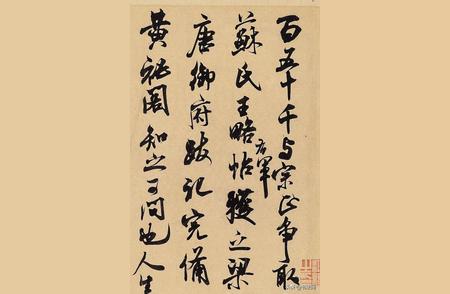 百五十千与宗正争取
蘇氏王略帖右軍獲之梁
唐御府跋記完備
黄秘閣知之可問也人生